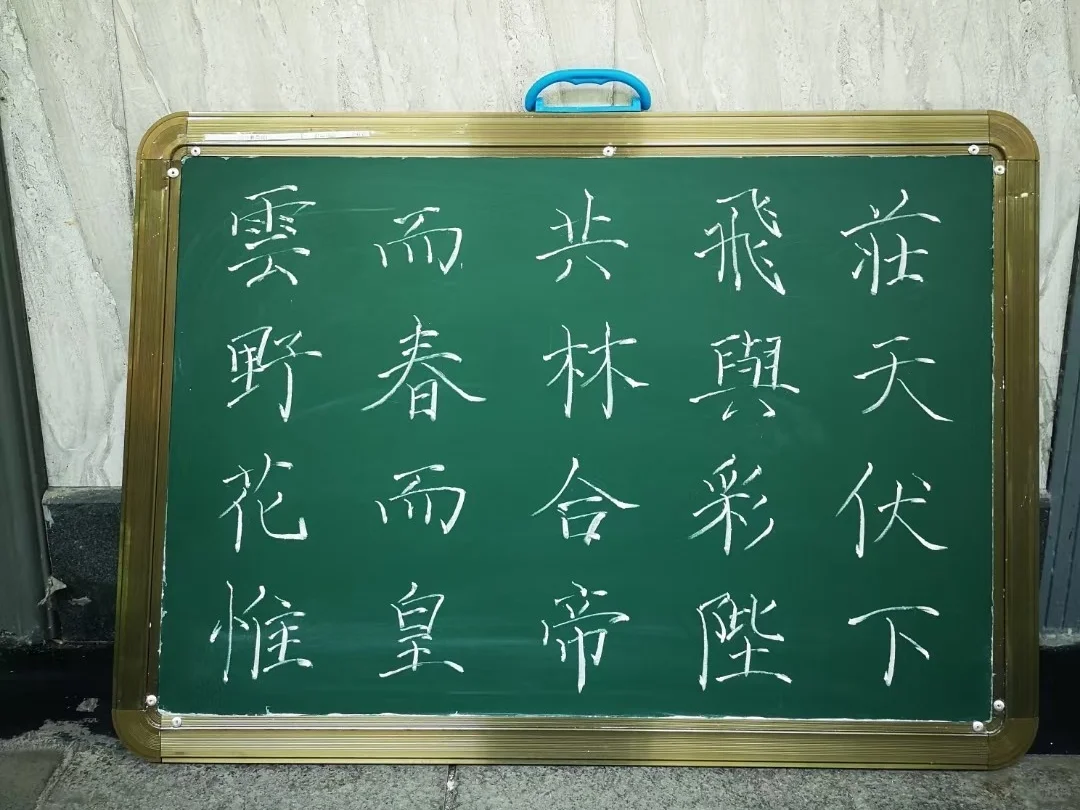 雲而共飛莊
野春林與天
花而合彩伏
惟皇帝陛下